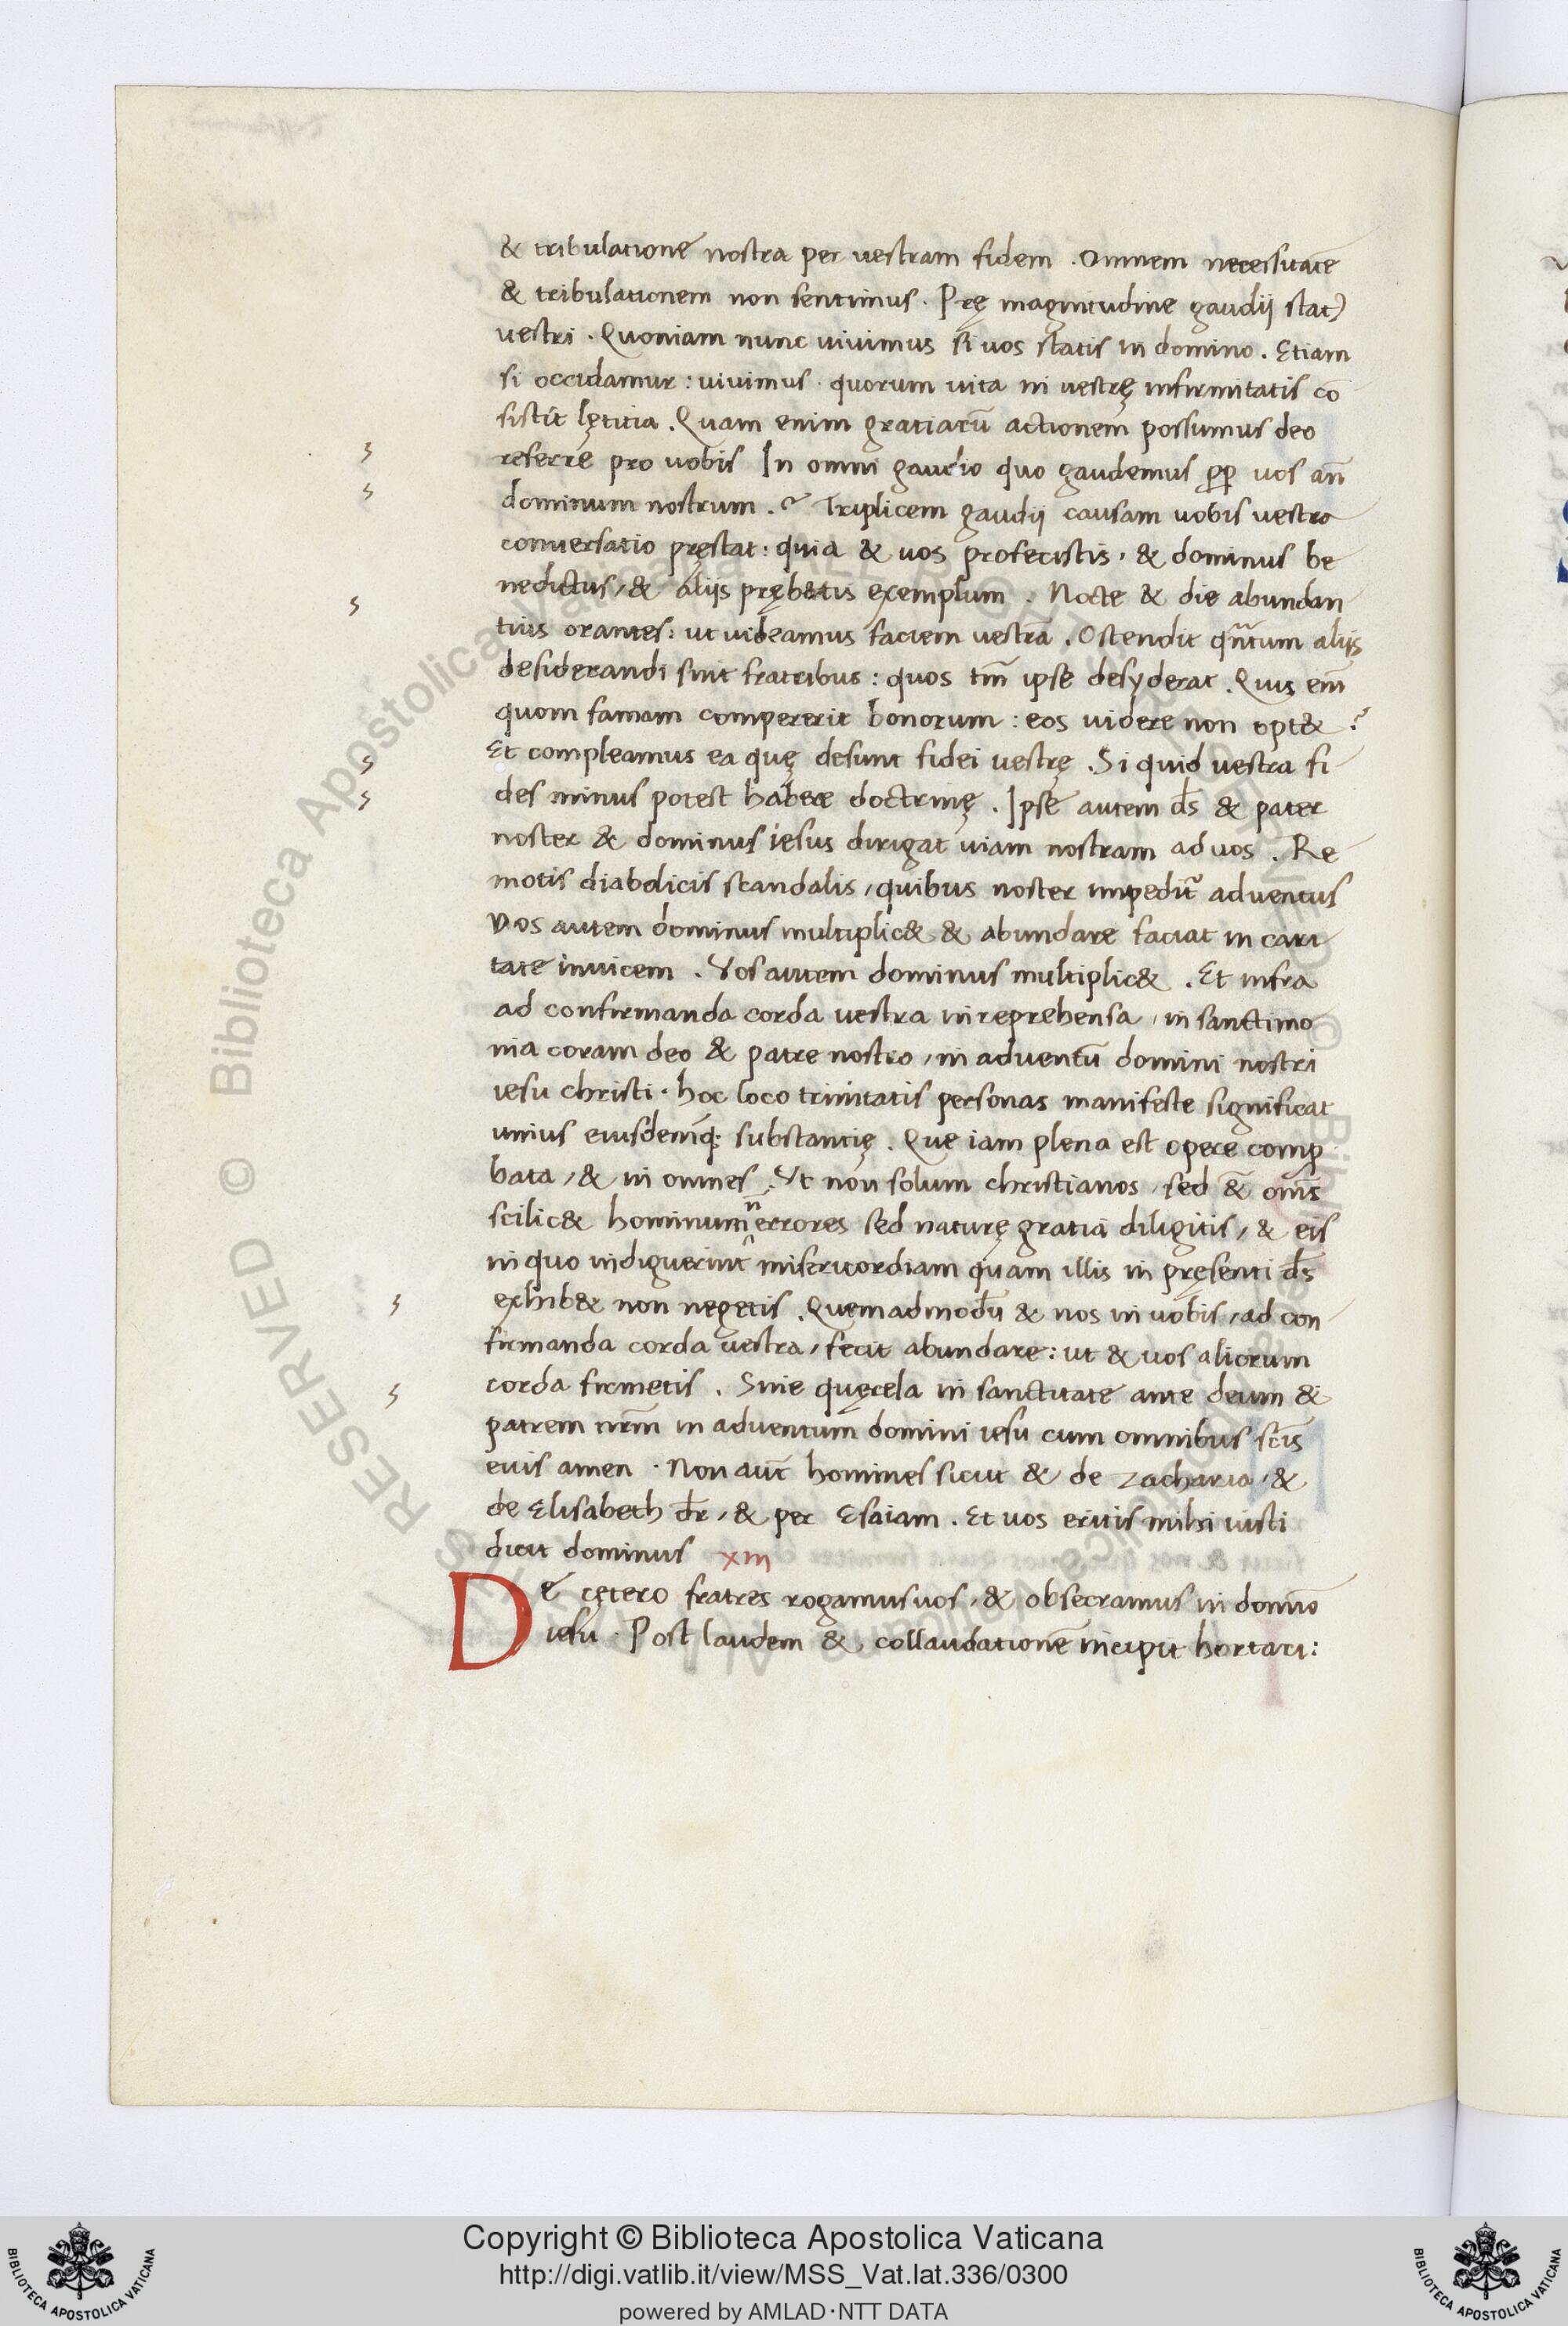 & tribulatione nostra per uestram fidem . Omnem necessitatē
& tribulationem non sentimus . Prę magnitudine gaudij stat)
uestri . Quoniam nunc uiuimus si uos statis in domino . Etiam
si occidamur : uiuimus . quorum uita in uestrę infirmitatis cō
sistit lętitia . Quam enim gratiarū actionem possumus deo
referre pro uobis In omni gaudio quo gaudemus ꝓpꝑ uos añ
dominum nostrum . Triplicem gaudij causam uobis uestra
conuersatio pręstat : quia & uos profecistis , & dominus be
nedictus , & alijs prębetis exemplum . Nocte & die abundan
tius orantes : ut uideamus faciem uestrā . Ostendit qñtum alijs
desiderandi sint fratribus : quos tm̄ ipse desyderat . Quis em̄
quom famam compererit bonorum : eos uidere non opt& ?
Et compleamus ea quę desunt fidei uestrę . Si quid uestra fi
des minus potest habere doctrinę . Ipse autem ds̄ & pater
noster & dominus iesus dirigat uiam nostram ad uos . Re
motis diabolicis scandalis , quibus noster impedit̃ aduentus
Vos autem dominus multiplic& & abundare faciat in cari
tate inuicem . Vos autem dominus multiplic& . Et infra
ad confirmanda corda uestra inreprehensa , in sanctimo
nia coram deo & patre nostro , in aduentū domini nostri
iesu christi . hoc loco trinitatis personas manifeste significat
unius eiusdemq; substantię . Que iam plena est opere comꝓ
bata , & in omnes . Vt non solum christianos , sed &̄ om̄s
scilic& hominum n̄ errores sed naturę gratia diligitis , & eis
in quo indiguerint misericordiam quam illis in pręsenti ds̄
exhib& non negetis . Quemadmodū & nos in uobis , ad con
firmanda corda uestra , fecit abundare : ut & uos aliorum
corda firmetis . Sine quęrela in sanctitate ante deum &
patrem nr̄m in aduentum domini iesu cum omnibus sc̄is
euis amen . Non aut̄ homines sicut & de zacharia , &
de Elisabeth dr̄ , & per Esaiam . Et uos eritis mihi iusti
dicit dominus xiii
De cętero fratres rogamus uos , & obsecramus in domīo
iesu . Post laudem & collaudationē incipit hortari :
RESERVED © Biblioteca Apostolica Vaticana
Copyright © Biblioteca Apostolica Vaticana
http://digi.vatlib.it/view/MSS_Vat.lat.336/0300
powered by AMLAD·NTT DATA
BIBLIOTECA APOSTOLICA VATICANA
BIBLIOTECA APOSTOLICA VATICANA